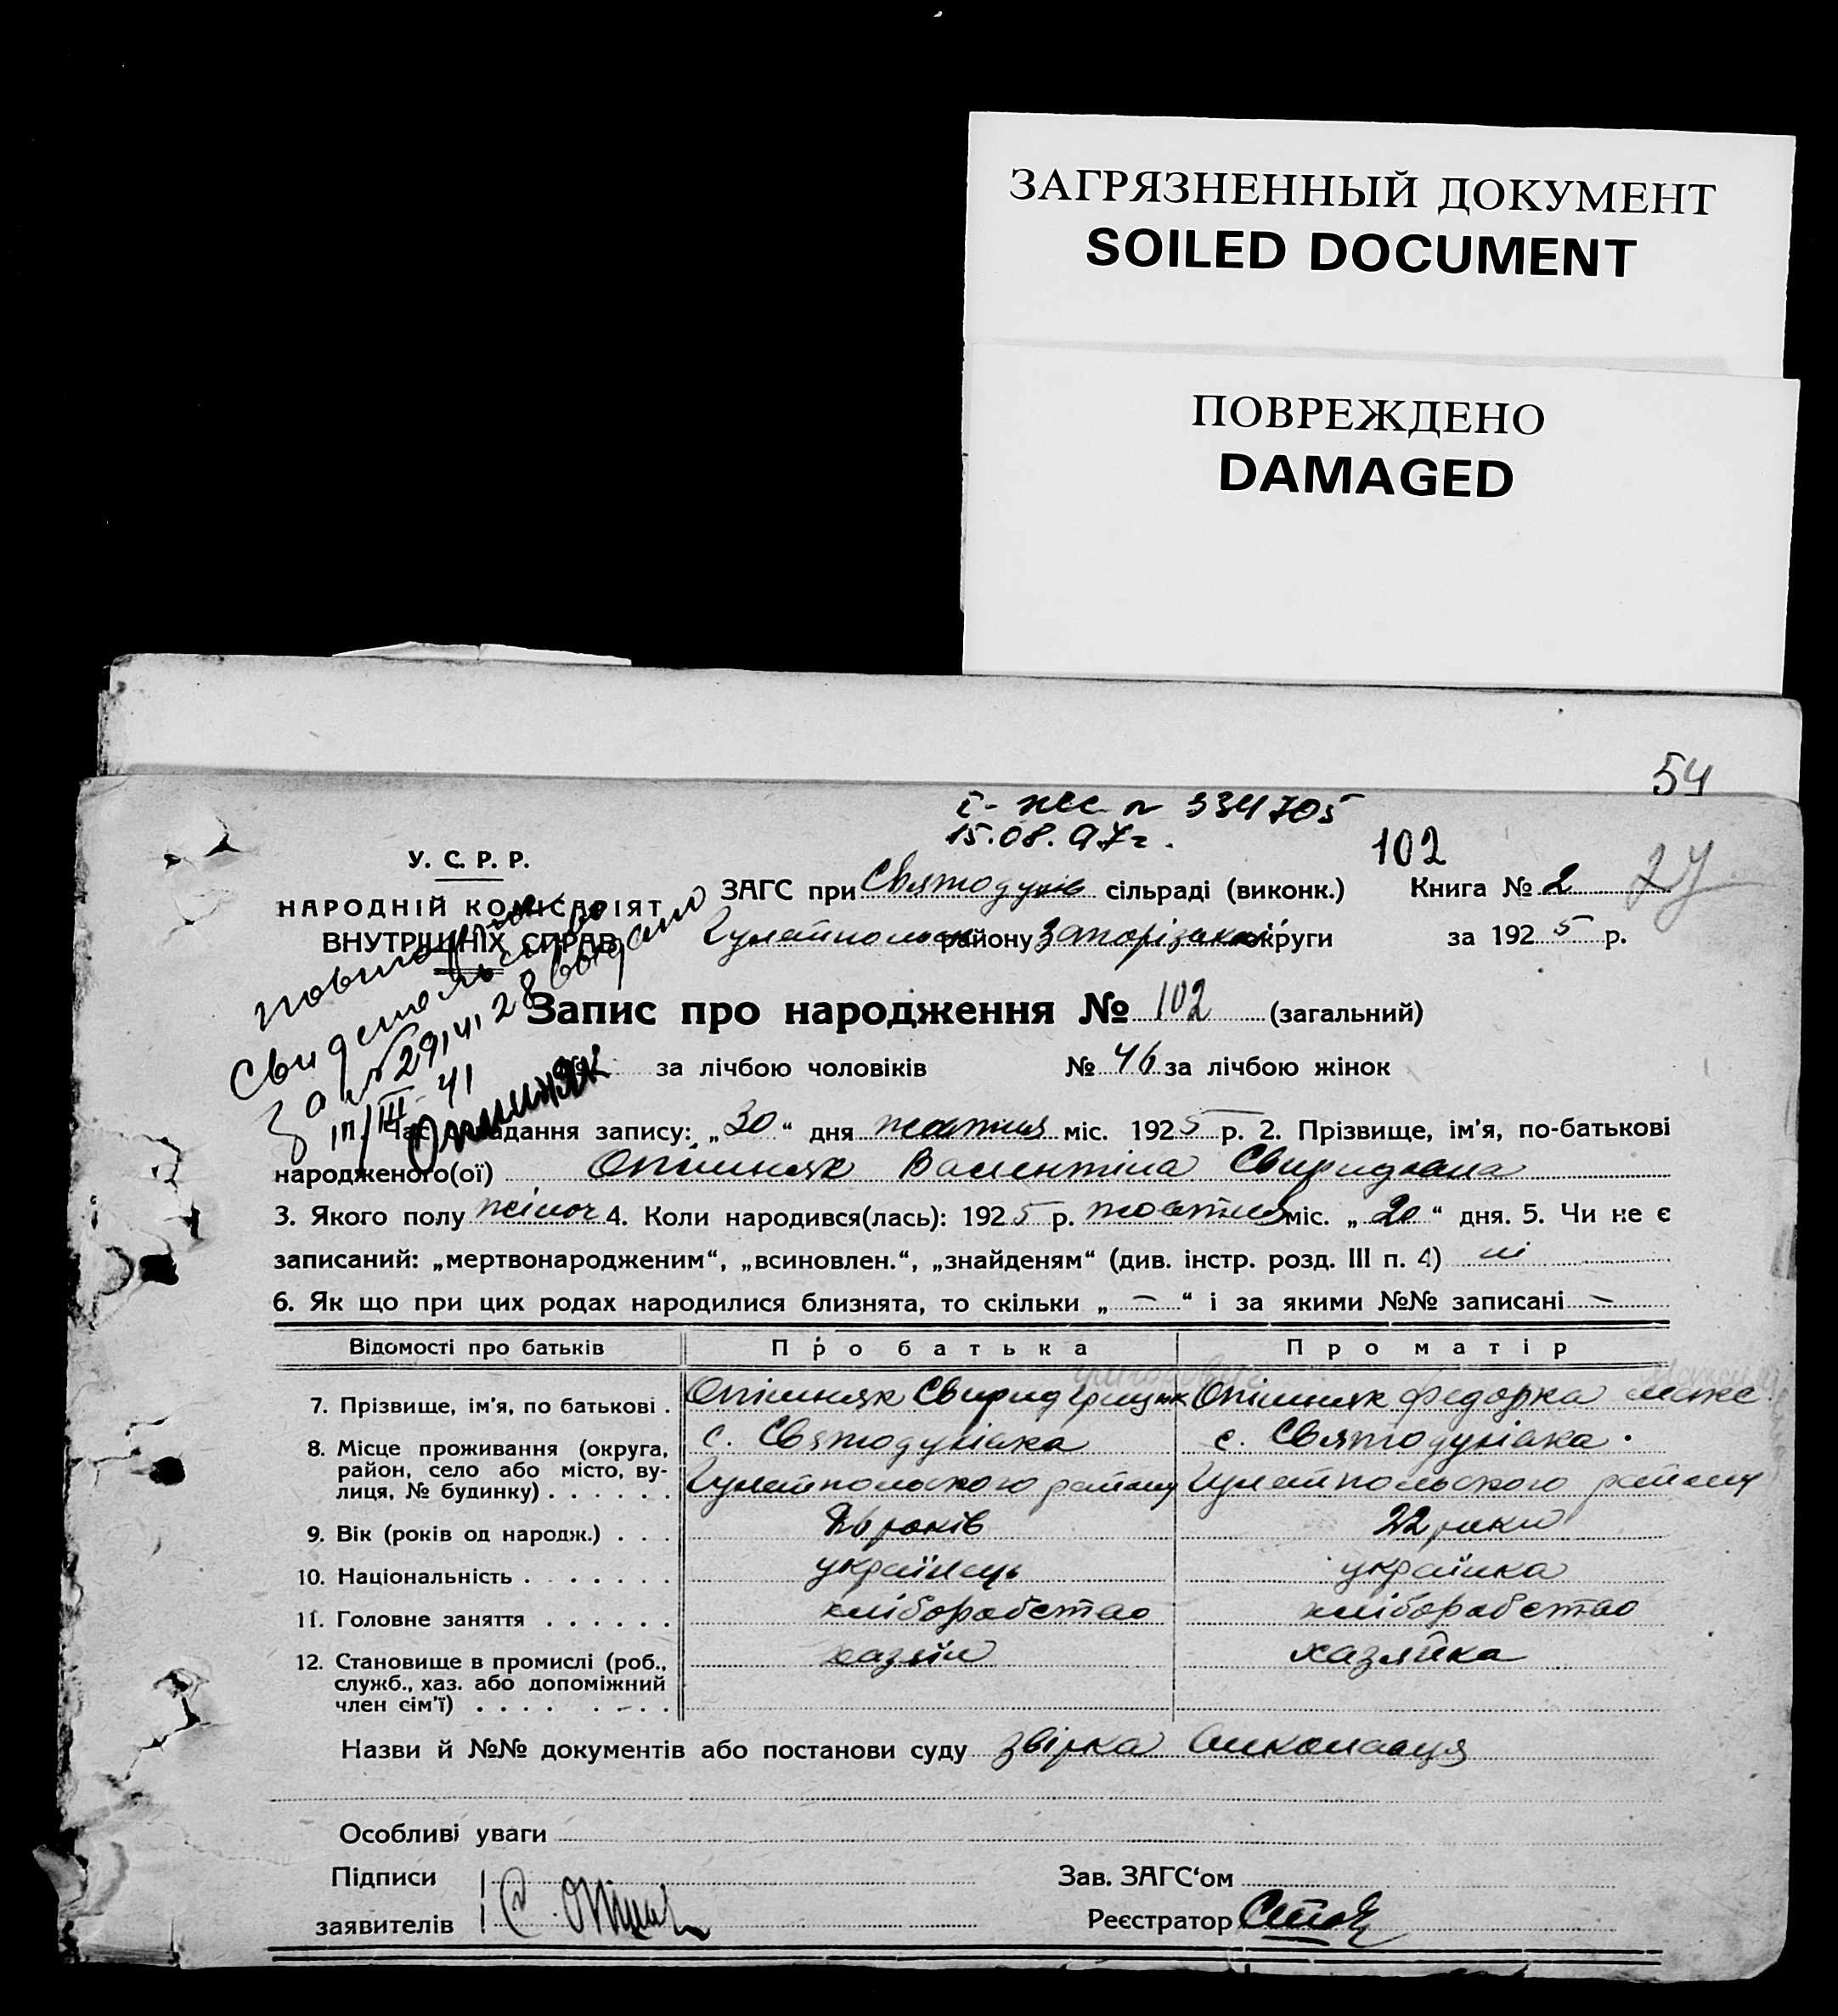 ЗАГРЯЗНЕННЫЙ ДОКУМЕНТ
SOILED DOCUMENT
ПОВРЕЖДЕНО
DAMAGED
54
334705
15.08.97г.
102
27
У. С. Р. Р.
НАРОДНІЙ КОМІСАРІЯТ
ВНУТРІШНІХ СПРАВ
повторное
свидетельство
за №29141, 28 выдано
III 41
Опишняк
ЗАГС при Святодухів сільраді (виконк.) Книга № 2
Гуляйпольськ району Запорізької округи за 1925 р.
Запис про народження № 102 (загальний)
за лічбою чоловіків № 46 за лічбою жінок
1. Час складання запису: „30“ дня жовтня міс. 1925 р. 2. Прізвище, ім'я, по-батькові
народженого(ої) Опішняк Валентіна Свиридовна
3. Якого полу жіноч 4. Коли народився(лась): 1925 р. жовтня міс. „20“ дня. 5. Чи не є
записаний: „мертвонародженим“, „всиновлен.“, „знайденям“ (див. інстр. розд. III п. 4) ні
6. Як що при цих родах народилися близнята, то скільки „ — “ і за якими №№ записані —
Відомості про батьків Про батька Про матір
7. Прізвище, ім'я, по батькові . Опішняк Свирид Грицьк Опішняк Федорка
8. Місце проживання (округа, район, село або місто, вулиця, № будинку) . . . . . . с. Святодухівка Гуляйпольского району с. Святодухівка. Гуляйпольского району
9. Вік (років од народж.) . . . 26 років 22 роки
10. Національність . . . . . . . українець українка
11. Головне заняття . . . . . . хліборобство хліборобство
12. Становище в промислі (роб., служб., хаз. або допоміжний член сім'ї) . . . . . . . хазяїн хазяйка
Назви й №№ документів або постанови суду звірка виконавця
Особливі уваги
Підписи Зав. ЗАГС'ом
заявителів Реєстратор